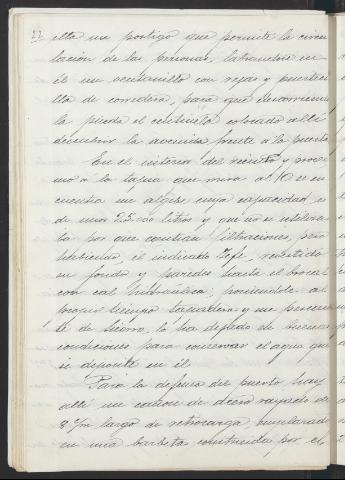 22
ella un postigo que permite la circu
lación de las personas, labrandose en
él un ventanillo con rejas y puerteci
lla de corredera, para que descorrien
la pueda el centinela colocado allí
descubrir la avenida frente á la puerta
En el interior del recinto y próxi
mo á la tapia que mira al N. se en
cuentra un algibe cuya capacidad es
de unos 25.000 litros y que no se utiliza
ba por que tenian filtraciones, pero
habiendo, el indicado Jefe, revestido
su fondo y paredes hasta el brocal
con cal hidráulica, poniendole al
propio tiempo tapadera y una percera
de hierro, lo ha dejado de buenas
condiciones para conservar el agua que
se deposite en él.
Para la defensa del puerto hay
allí un cañon de acero rayado de
8 c/m largo de retrocarga, emplazado
en una barbeta construida por el